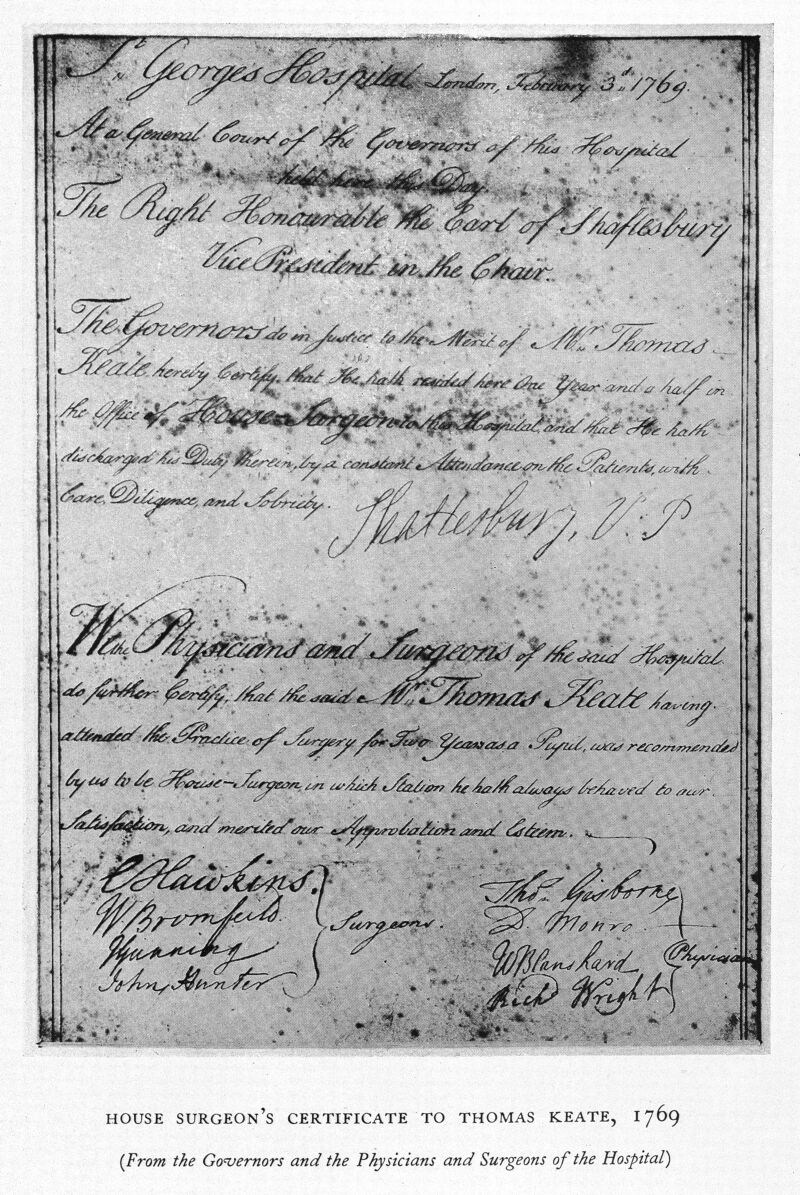 St. Georges Hospital London, February 3d. 1769.
At a General Court of the Governors of this Hospital
held here this Day.
The Right Honourable the Earl of Shaftesbury
Vice President in the Chair.
The Governors do in Justice to the Merit of Mr. Thomas
Keate hereby Certify, that He hath resided here One Year and a half in
the Office of House-Surgeon to this Hospital, and that He hath
discharged his Duty therein, by a constant Attendance on the Patients, with
Care, Diligence, and Sobriety.
Shaftesbury, V. P
We the Physicians and Surgeons of the said Hospital
do further Certify, that the said Mr. Thomas Keate having
attended the Practice of Surgery for Two Years as a Pupil, was recommended
by us to be House-Surgeon, in which Station he hath always behaved to our
Satisfaction, and merited our Approbation and Esteem.
C Hawkins.
W Bromfeild.
W Gunning
John Hunter
Surgeons.
Thos. Gisborne
D. Monro
W Blanshard
Richd Wright
Physicians
HOUSE SURGEON'S CERTIFICATE TO THOMAS KEATE, 1769
(From the Governors and the Physicians and Surgeons of the Hospital)